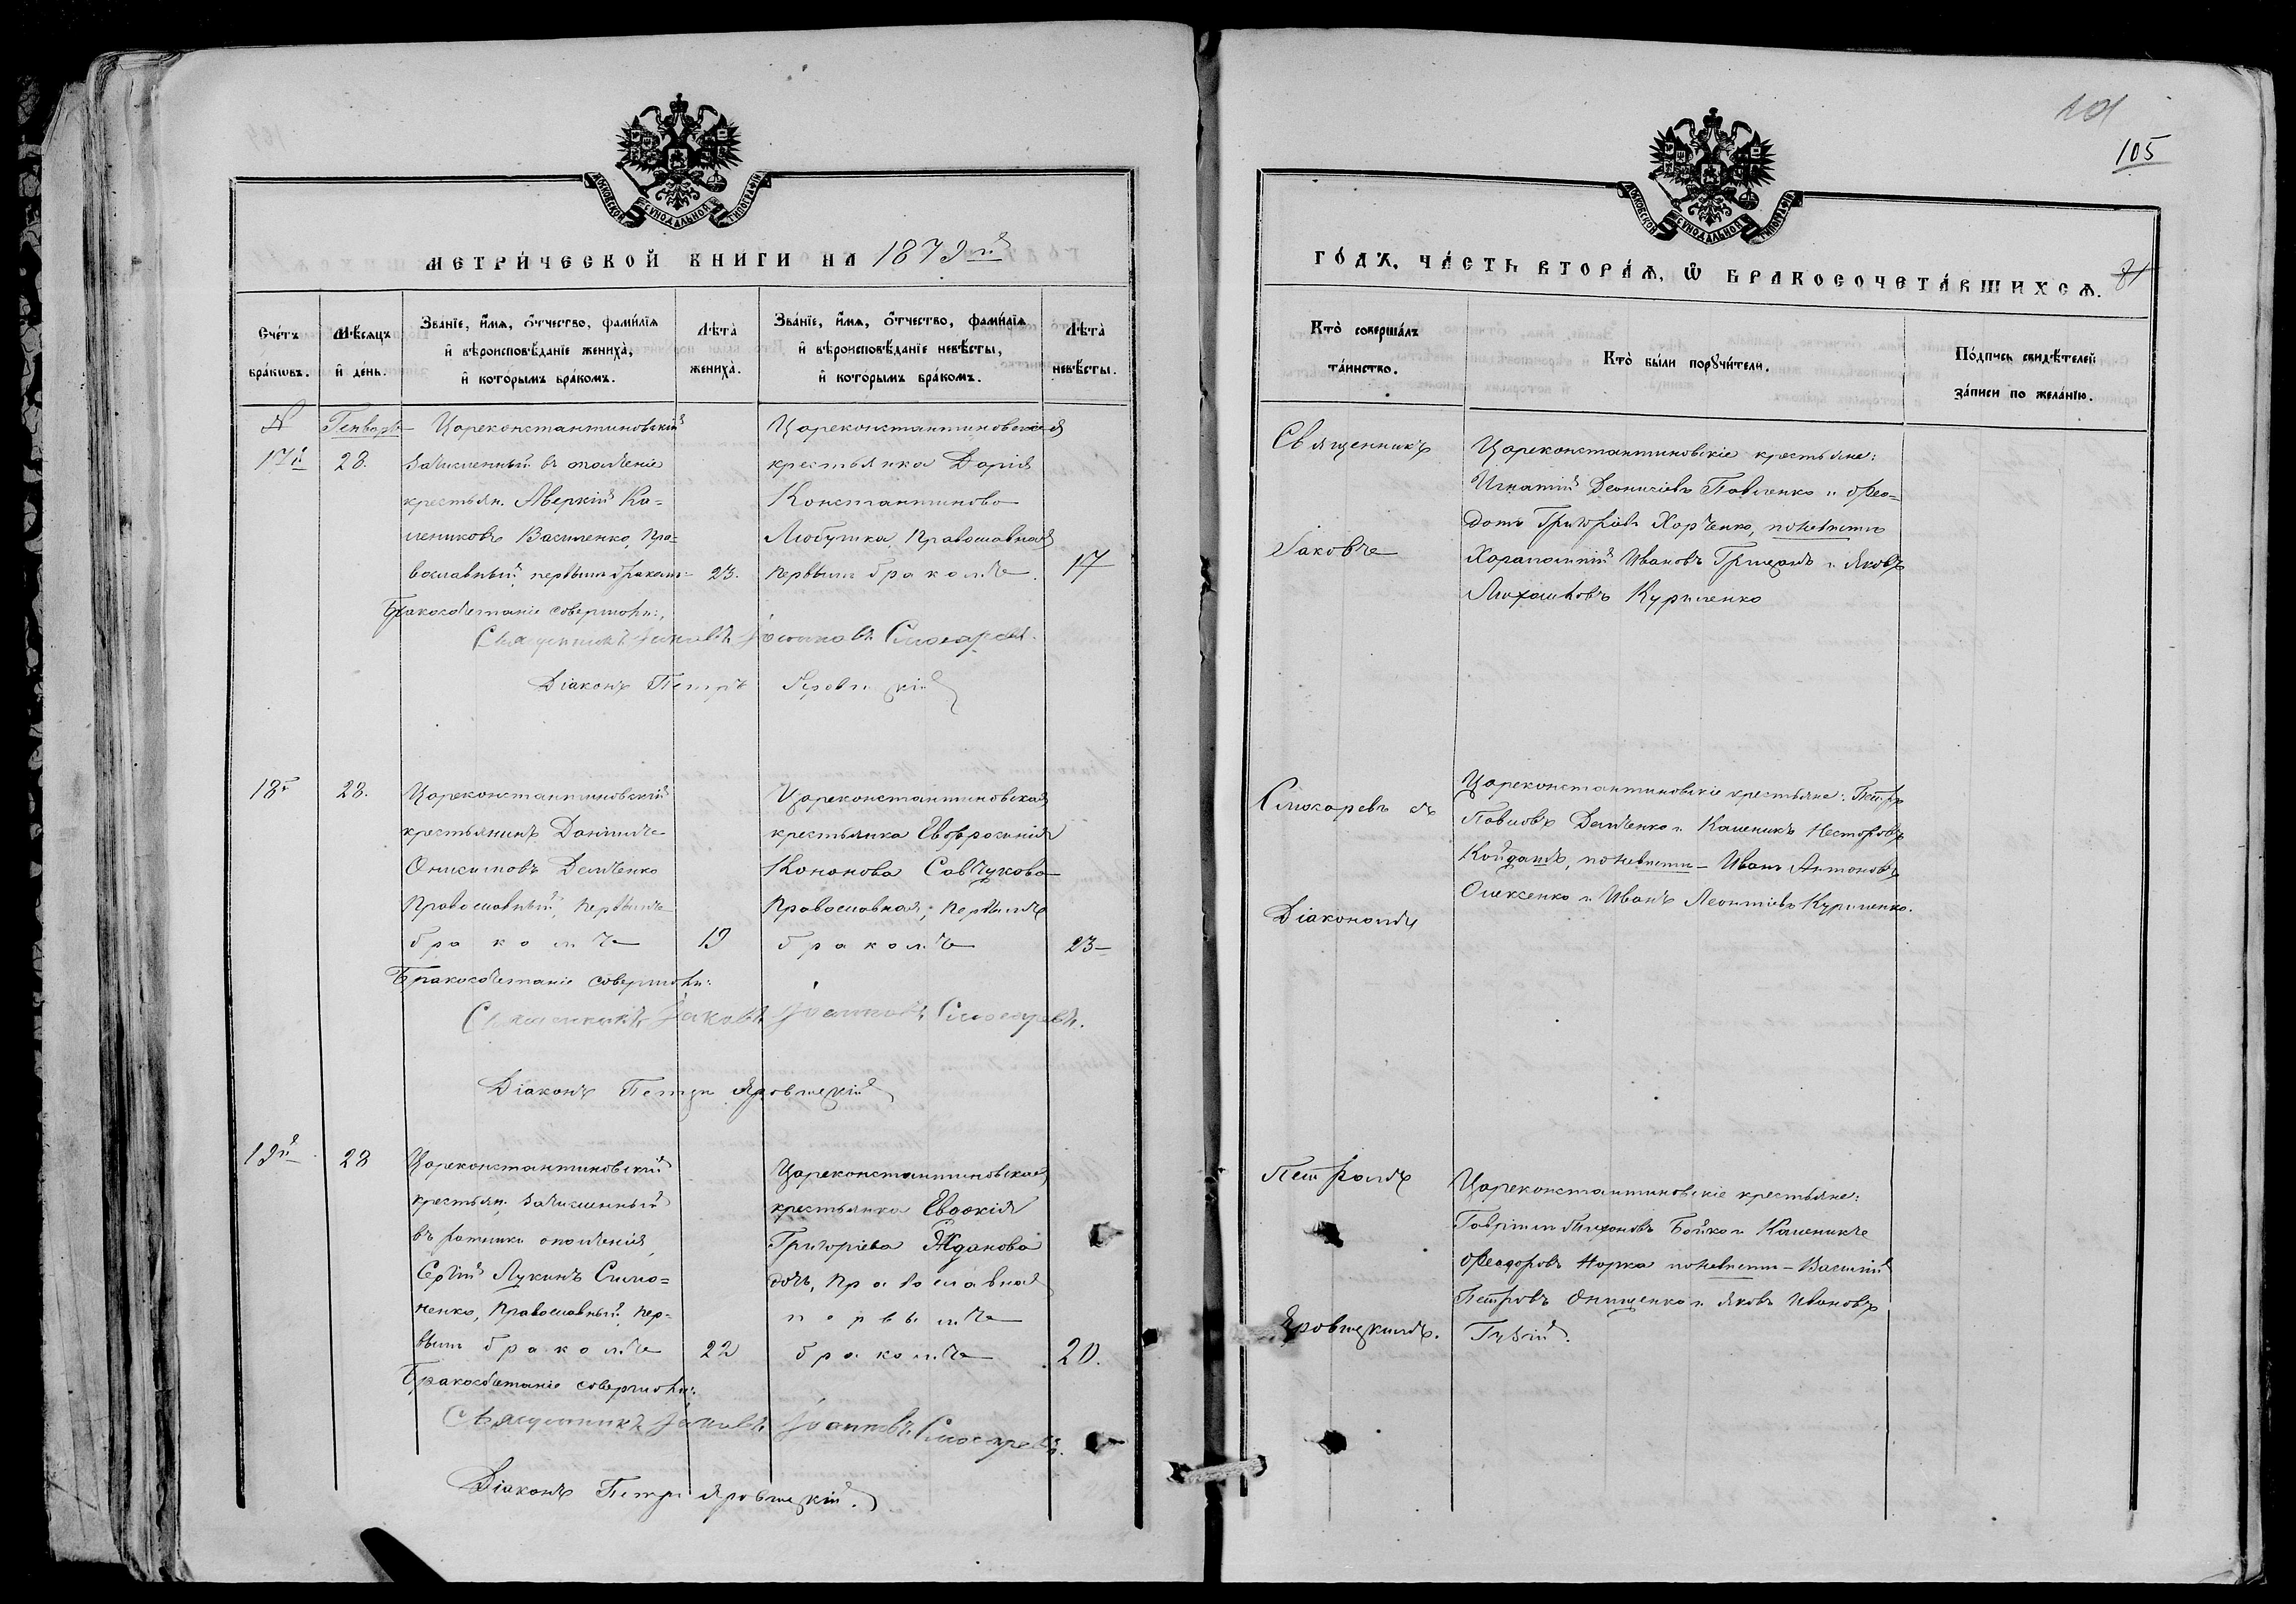 МОСКОВСКОЙ СѴНОДАЛЬНОЙ ТИПОГРАФІИ
МЕТРИ́ЧЕСКОЙ КНИГИ НА 1879й
Сче́тъ бра́кѡвъ.
Мѣ́сяцъ и҆ де́нь.
Зва́нїе, и҆́мѧ, ѻ҆́тчество, фами́лїѧ
и҆ вѣроисповѣ́данїе жениха̀,
и҆ кото́рымъ бра́комъ.
Лѣ́та жениха̀.
Зва́нїе, и҆́мѧ, ѻ҆́тчество, фами́лїѧ
и҆ вѣроисповѣ́данїе невѣ́сты,
и҆ кото́рымъ бра́комъ.
Лѣ́та невѣ́сты.
№ Генварь
17й 28.
Цареконстантиновскій
зачисленный въ ополченіе
крестьян. Аверкій Ка=
лениковъ Василенко, Пра=
вославный первымъ бракомъ 23.
Цареконстантиновская
крестьянка Дарія
Константинова
Любушка, Православная
первымъ бракомъ. 17
Бракосочетаніе совершали:
Священникъ Іаковъ Іоанновъ Слюсаревъ.
Діаконъ Петръ Яровицкій
18й 28.
Цареконстантиновскій
крестьянинъ Даніилъ
Онисимовъ Демченко
Православный, первымъ
бракомъ 19
Цареконстантиновская
крестьянка Евфросинія
Кононова Савчукова
Православная, первымъ
бракомъ 23
Бракосочетаніе совершали:
Священникъ Іаковъ Іоанновъ Слюсаревъ.
Діаконъ Петръ Яровицкій
19й 28
Цареконстантиновскій
крестьян. зачисленный
въ ратники ополченія,
Сергій Лукинъ Симо=
ненко, Православный, пер=
вымъ бракомъ 22
Цареконстантиновская
крестьянка Евдокія
Григоріева Жданова
дочь, Православная
первымъ
бракомъ 20.
Бракосочетаніе совершали:
Священникъ Іаковъ Іоанновъ Слюсаревъ.
Діаконъ Петръ Яровицкій.
101
105
МОСКОВСКОЙ СѴНОДАЛЬНОЙ ТИПОГРАФІИ
ГО́ДЪ, ЧА́СТЬ ВТОРА́Ѧ, Ѽ БРАКОСОЧЕТА́ВШИХСѦ.
Кто̀ соверша́лъ та́инство.
Кто̀ бы́ли порꙋчи́тели.
По́дпись свидѣ́телей за́писи по жела́нїю.
Священникъ
Іаковъ
Слюсаревъ съ
Діакономъ
Петромъ
Яровицкимъ.
Цареконстантиновскіе крестьяне:
Игнатій Деонисіевъ Павленко и Ѳео=
дотъ Григоріевъ Харченко, по невѣстѣ
Харлампій Ивановъ Грицанъ и Яковъ
Куриленко
Цареконстантиновскіе крестьяне: Петръ
Павловъ Демченко и Каленикъ Несторовъ
по невѣстѣ – Иванъ Антоновъ
Олексенко и Иванъ Леонтіевъ Куриленко.
Цареконстантиновскіе крестьяне:
Гавріилъ Тихоновъ Бойко и Каленикъ
Ѳеодоровъ Норка по невѣстѣ – Василій
Петровъ Онищенко и Яковъ Ивановъ